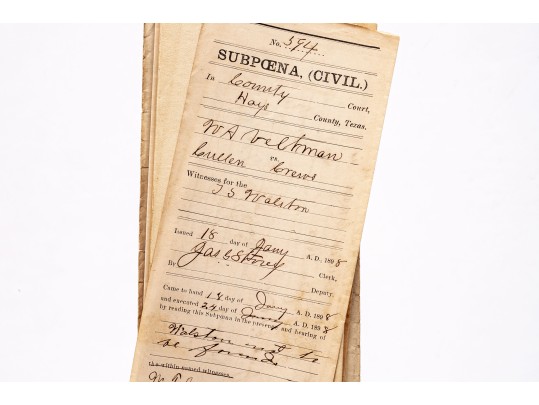 No. 594
SUBPŒNA, (CIVIL.)
In County Court,
Hays County, Texas.
W A Veltman
vs.
Cullen Crews
Witnesses for the
T S Walston
Issued 18 day of Jany A. D. 1898
Jas G Storey Clerk,
By Deputy.
Came to hand 18 day of Jany A. D. 1898
and executed 24 day of Jany A. D. 1898
by reading this Subpœna in the presence and hearing of
Walston not to
be found
the within named witnesses